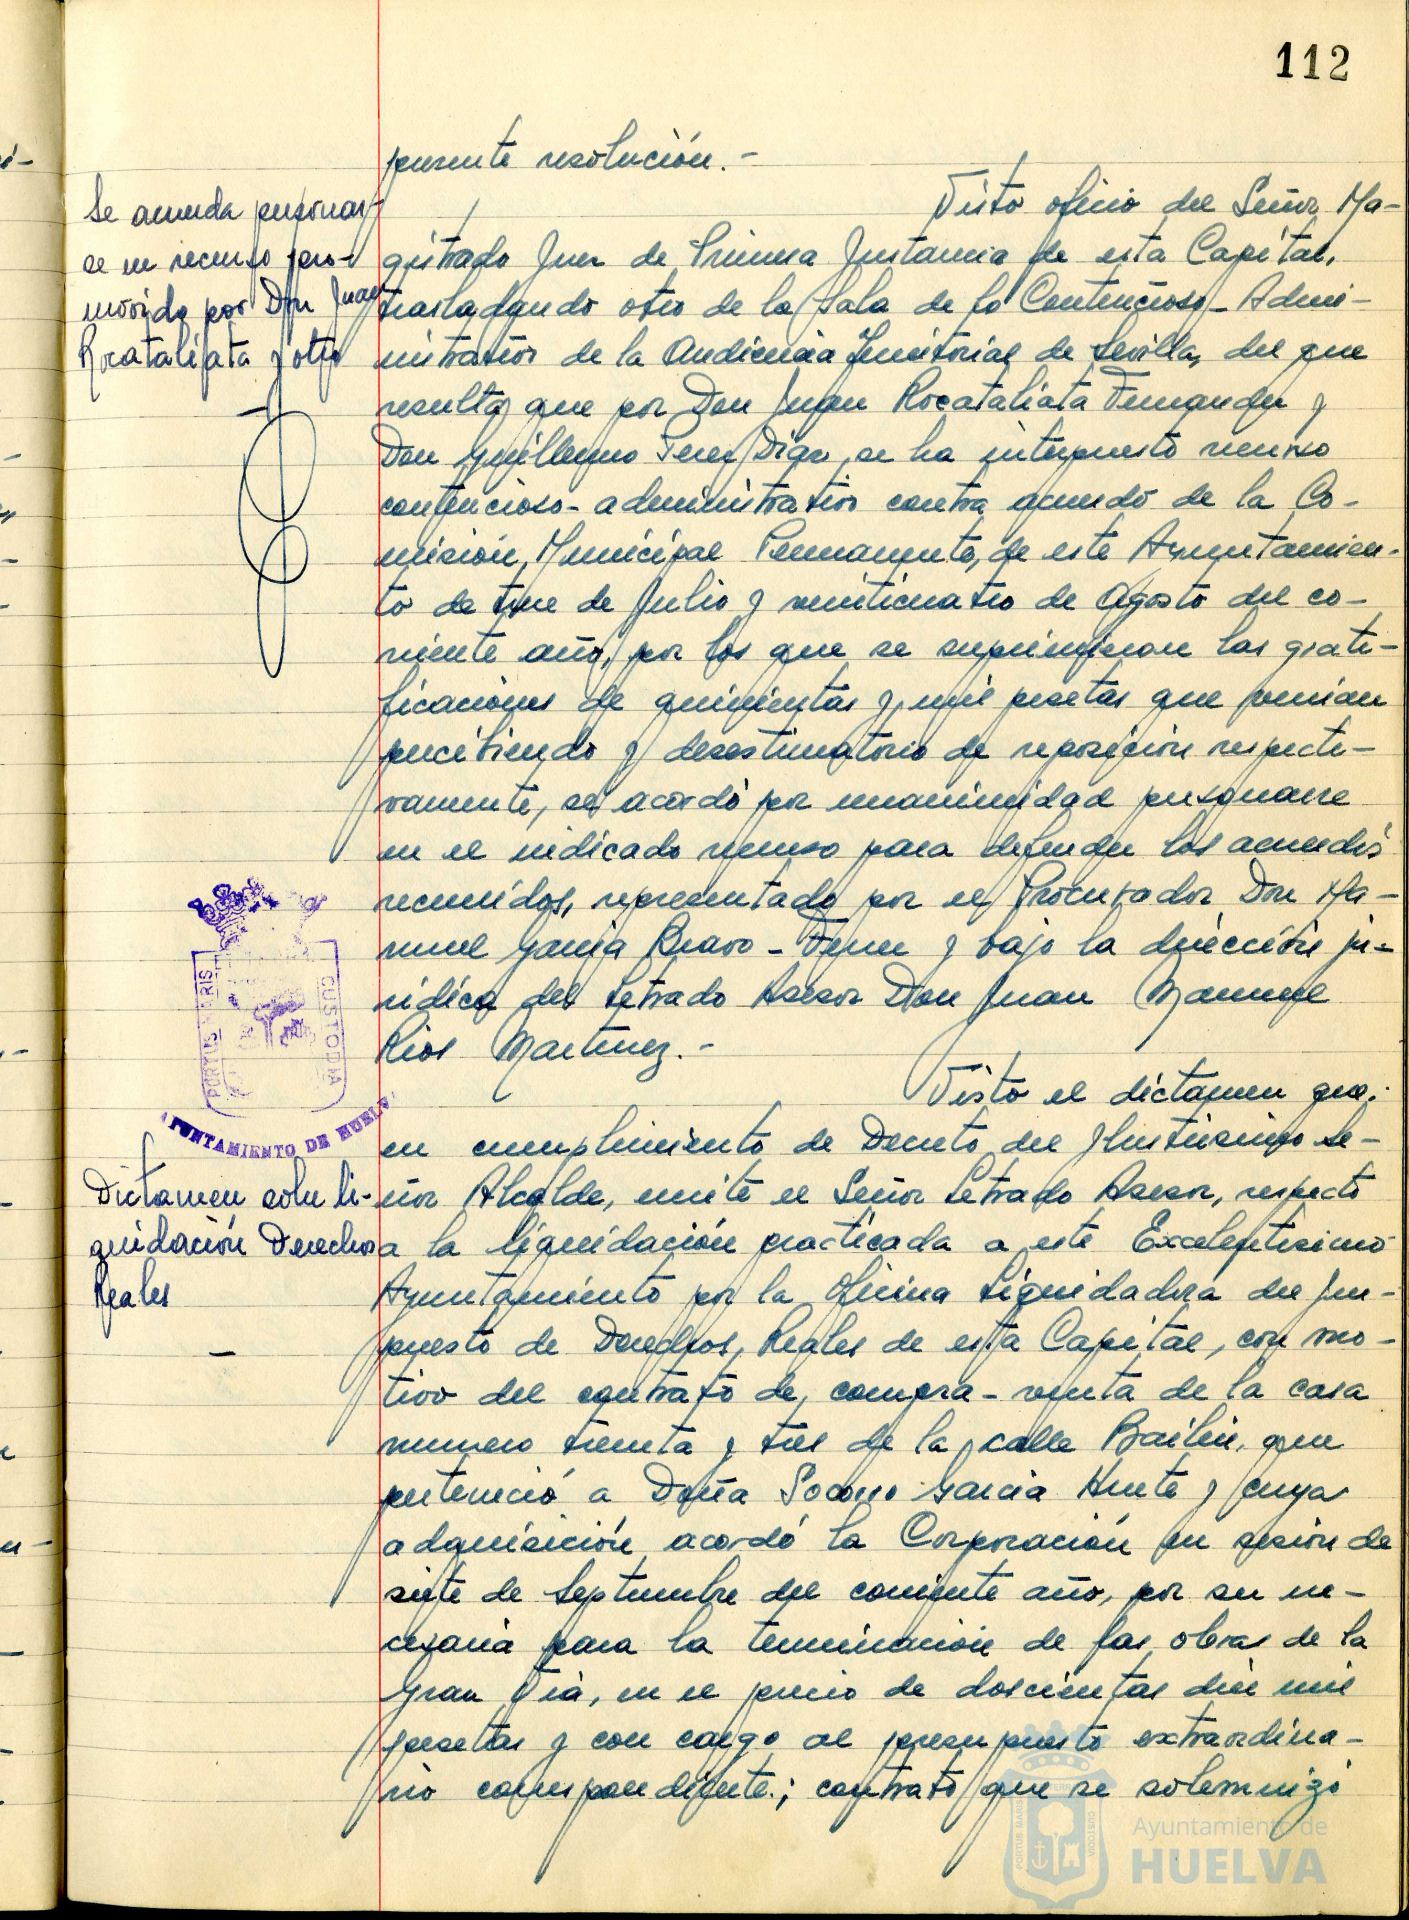 112
presente resolución.-
Se acuerda personar-
se en recurso pro-
movido por Don Juan
Rocataliata y otro
Visto oficio del Señor Ma-
gistrado Juez de Primera Instancia de esta Capital,
trasladando otro de la Sala de lo Contencioso-Admi-
nistrativo de la Audiencia Territorial de Sevilla, del que
resulta que por Don Juan Rocataliata Fernandez y
Don Guillermo Perez Diaz, se ha interpuesto recurso
contencioso-administrativo contra acuerdo de la Co-
misión Municipal Permanente, de este Ayuntamien-
to de trece de Julio y veinticuatro de Agosto del co-
rriente año, por los que se suprimieron las grati-
ficaciones de quinientas y mil pesetas que venian
percibiendo y desestimatorio de reposición respecti-
vamente, se acordó por unanimidad personarse
en el indicado recurso para defender los acuerdos
recurridos, representado por el Procurador Don Ma-
nuel Garcia Bravo-Ferrer y bajo la dirección ju-
ridica del Letrado Asesor Don Juan Manuel
Rios Martinez.-
PORTUS MARIS
CUSTODIA
AYUNTAMIENTO DE HUELVA
Dictamen sobre li-
quidación Derechos
Reales
Visto el dictamen que,
en cumplimiento de Decreto del Ilustrisimo Se-
ñor Alcalde, emite el Señor Letrado Asesor, respecto
a la liquidación practicada a este Excelentisimo
Ayuntamiento por la Oficina Liquidadora del Im-
puesto de Derechos Reales de esta Capital, con mo-
tivo del contrato de compra-venta de la casa
numero treinta y tres de la calle Bailén, que
perteneció a Doña Socorro Garcia Huete y cuya
adquisición acordó la Corporación en sesión de
siete de Septiembre del corriente año, por ser ne-
cesaria para la terminación de las obras de la
Gran Via, en el precio de doscientas diez mil
pesetas y con cargo al presupuesto extraordina-
rio correspondiente; contrato que se solemnizó
Ayuntamiento de
HUELVA